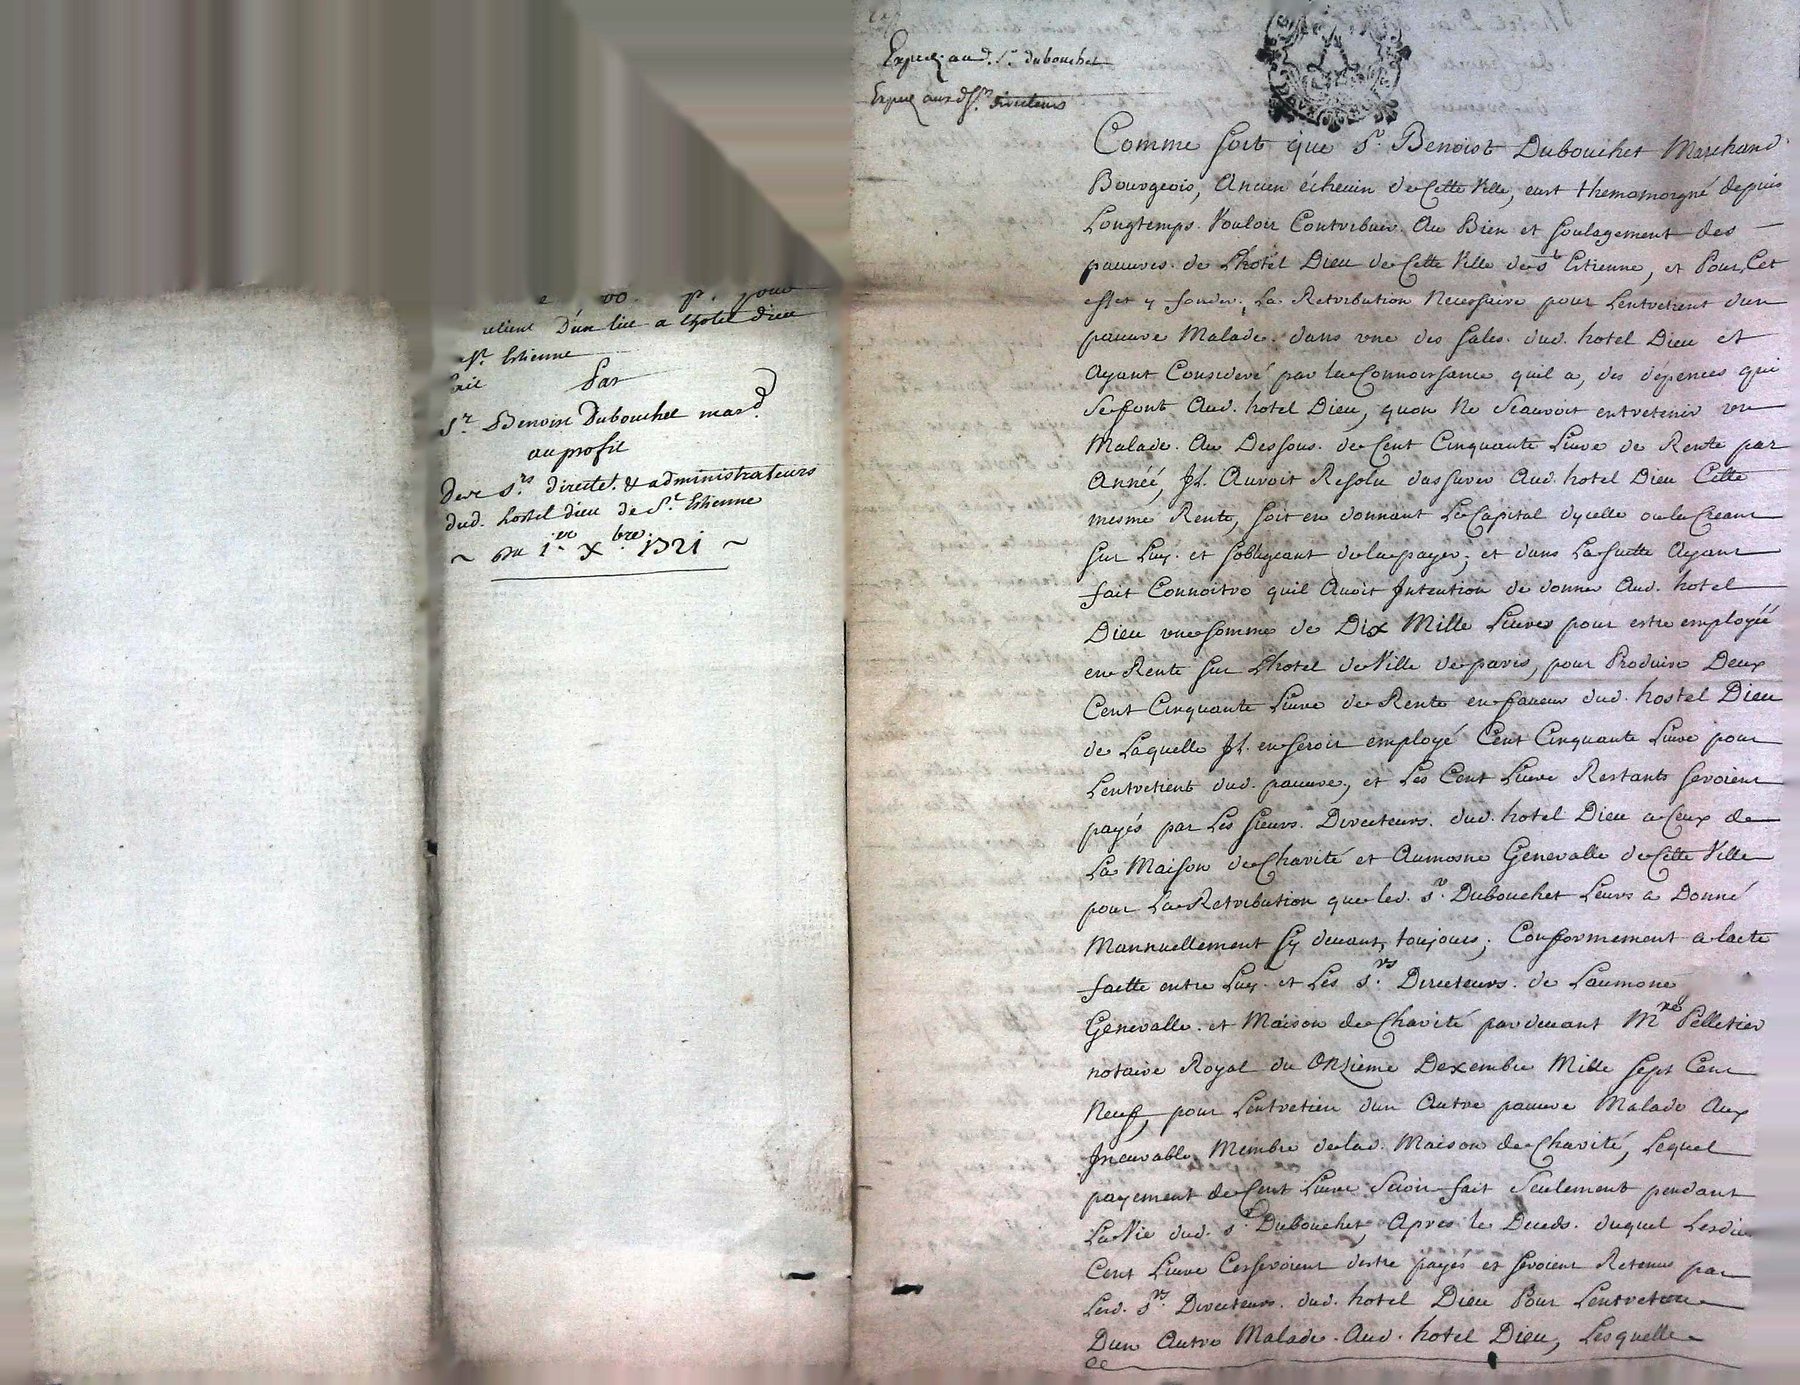 pour
Dun lit a lhotel dieu
St. Estienne
Par
Sr. Benoist Dubouchet mard.
au profit
Des Srs. directrs. & administrateurs
dud. hostel dieu de St. Estienne
~ Du 1er. Xbre. 1721 ~
Exped. aud. Sr. dubouchet
Exped. auxd. Srs. directeurs
Comme soit que Sr. Benoist Dubouchet Marchand
Bourgeois, Ancien échevin de Cette Ville, eust themomoigné depuis
Longtemps Vouloir Contribuer Au Bien et soulagement des
pauvres de Lhotel Dieu de Cette Ville de St Estienne, et Pour Cet
effet y fonder la Retribution Necessaire pour Lentretient dun
pauvre Malade dans vne des sales dud. hotel Dieu et
Ayant Consideré par la Connoissance quil a, des dépences qui
Se font Aud. hotel Dieu, quon Ne Scauroit entretenir vn
Malade Au Dessous de Cent Cinquante Livre de Rente par
Année, Jl Auroit Resolu dassurer Aud. hotel Dieu Cette
mesme Rente, soit en donnant Le Capital dycelle ou la Creant
sur Luy et sobligeant de la payer, et dans La suitte Ayant
fait Connoitre quil Avoit Jntention de donner Aud. hotel
Dieu vne somme de Dix Mille Livres pour estre employéé
en Rente sur Lhotel de Ville de paris, pour Produire Deux
Cent Cinquante Livre de Rente en faveur dud. hostel Dieu
de Laquelle Jl en seroit employé Cent Cinquante Livre pour
Lentretient dud. pauvre, et Les Cent Livre Restants seroient
payés par Les sieurs Directeurs dud. hotel Dieu a Ceux de
La Maison de Charité et Aumosne Generalle de Cette Ville
pour La Retribution que led. Sr. Dubouchet Leurs a Donné
Mannuellement Cy devant, toujours, Conformement a lacte
faitte entre Luy et Les Srs. Directeurs de Laumone
Generalle et Maison de Charité pardevant Mre Pelletier
notaire Royal du Onzieme Dexembre Mille sept Cent
Neuf, pour Lentretien dun Autre pauvre Malade Aux
Jncurable, Membre de lad. Maison de Charité, Lequel
payement de Cent Livre Seroit fait Seulement pendant
La Vie dud. Sr. Dubouchet, Apres le Deceds duquel Lesdit
Cent Livre Cesseroient destre payés et seroient Retenus par
Lesd. Srs. Directeurs dud. hotel Dieu Pour Lentretien
Dun Autre Malade Aud. hotel Dieu, Lesquelle